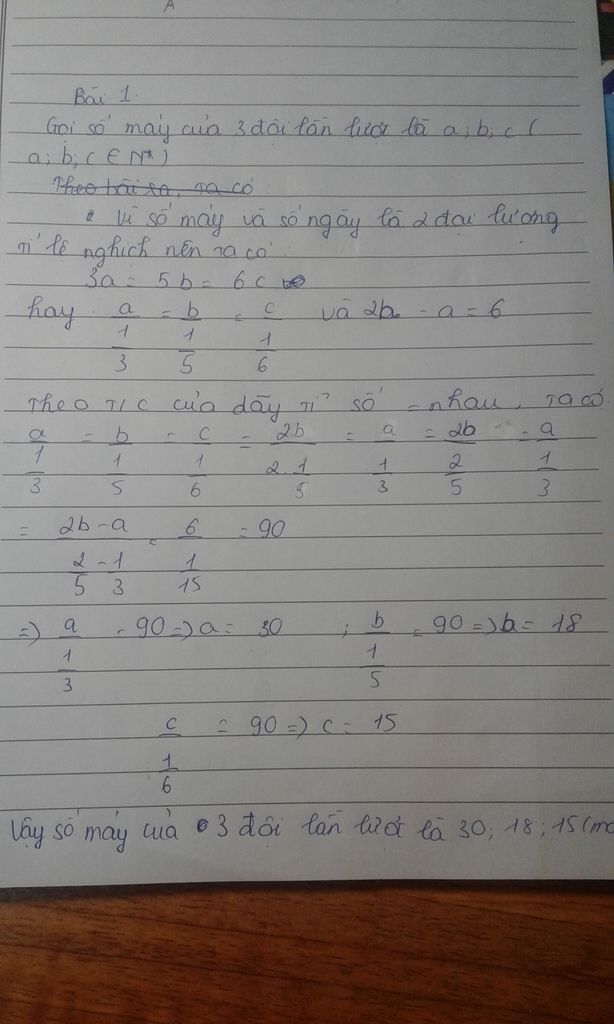 A
Bài 1.
Gọi số máy của 3 đội lần lượt là a; b; c (
a; b; c ∈ N*)
Theo bài ra, ta có
Vì số máy và số ngày là 2 đại lượng
tỉ lệ nghịch nên ta có:
3a = 5b = 6c
hay a/(1/3) = b/(1/5) = c/(1/6) và 2b - a = 6
Theo T/C của dãy tỉ số = nhau, ta có
a/(1/3) = b/(1/5) = c/(1/6) = 2b/(2.1/5) = a/(1/3) = 2b/(2/5) = a/(1/3)
= (2b-a)/(2/5 - 1/3) = 6/(1/15) = 90
=> a/(1/3) = 90 => a = 30 ; b/(1/5) = 90 => b = 18
c/(1/6) = 90 => c = 15
Vậy số máy của 3 đội lần lượt là 30; 18; 15